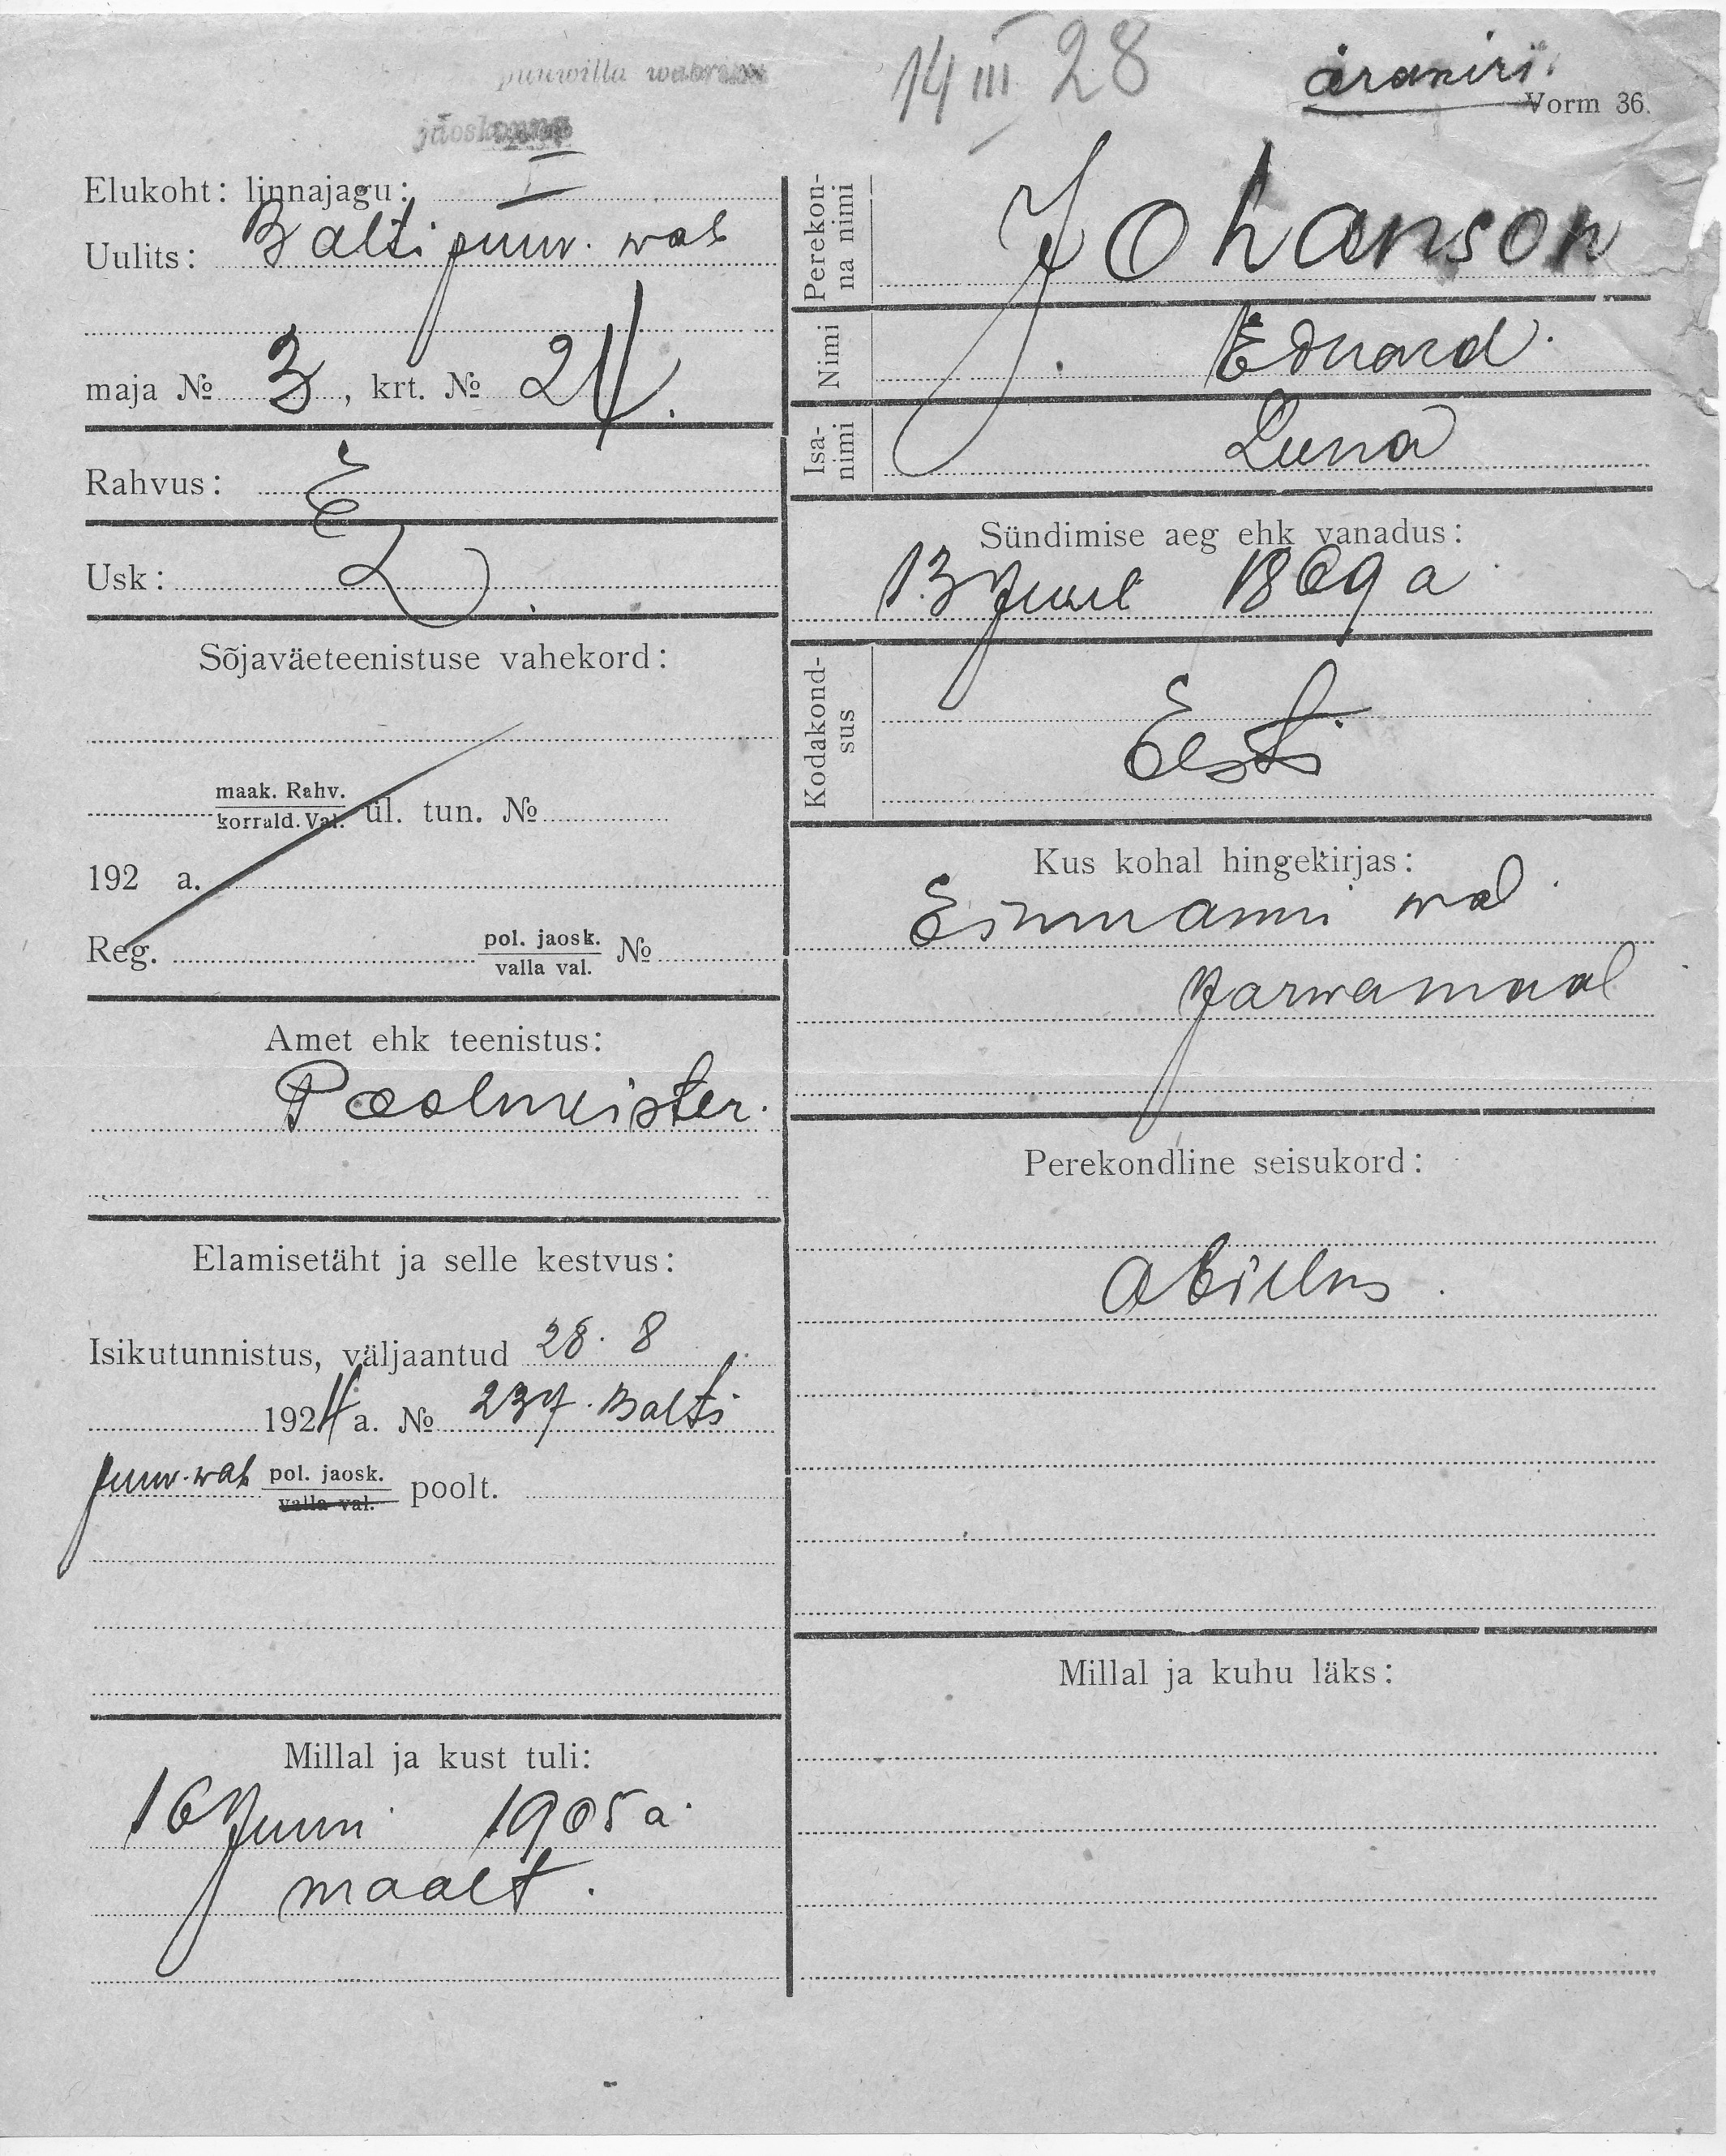 puuwilla wabriku
jaoskonna
14 III 28
ärakiri.
Vorm 36.
Elukoht: linnajagu: I
Uulits: Balti puuv. wab
maja № 3, krt. № 24.
Rahvus: E
Usk: L.
Sõjaväeteenistuse vahekord:
maak. Rahv.
korrald. Val. ül. tun. №
192 a.
Reg. pol. jaosk. №
valla val.
Amet ehk teenistus:
Poolmeister.
Elamisetäht ja selle kestvus:
Isikutunnistus, väljaantud 28. 8
1924 a. № 237. Balti
puuv. wab pol. jaosk. poolt.
valla val.
Millal ja kust tuli:
16 Juuni 1905 a.
maalt.
Perekon-
na nimi Johanson
Nimi Eduard.
Isa-
nimi
Sündimise aeg ehk vanadus:
13 1869 a
Kodakond-
sus Eesti
Kus kohal hingekirjas:
Einmanni wal.
Jarwamaal
Perekondline seisukord:
abielus.
Millal ja kuhu läks: